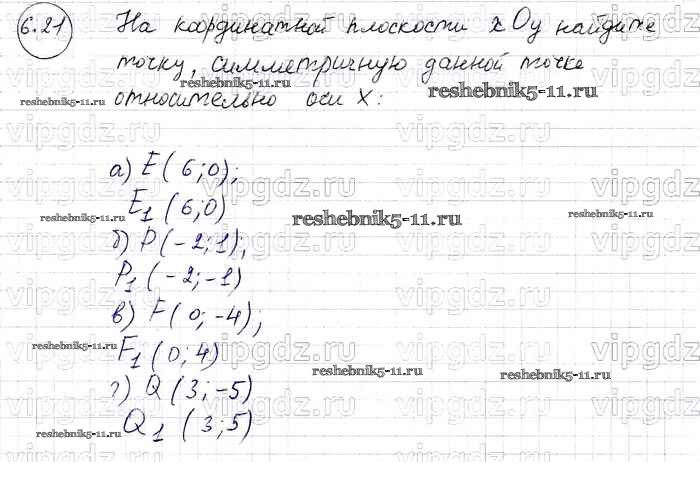 6.21 На координатной плоскости xOy найдите
точку, симметричную данной точке
относительно оси X:
а) E(6;0);
E1(6;0)
б) P(-2;1);
P1(-2;-1)
в) F(0;-4);
F1(0;4)
г) Q(3;-5)
Q1(3;5)
reshebnik5-11.ru
reshebnik5-11.ru
reshebnik5-11.ru
reshebnik5-11.ru
reshebnik5-11.ru
reshebnik5-11.ru
reshebnik5-11.ru
reshebnik5-11.ru
reshebnik5-11.ru
reshebnik5-11.ru
vipgdz.ru